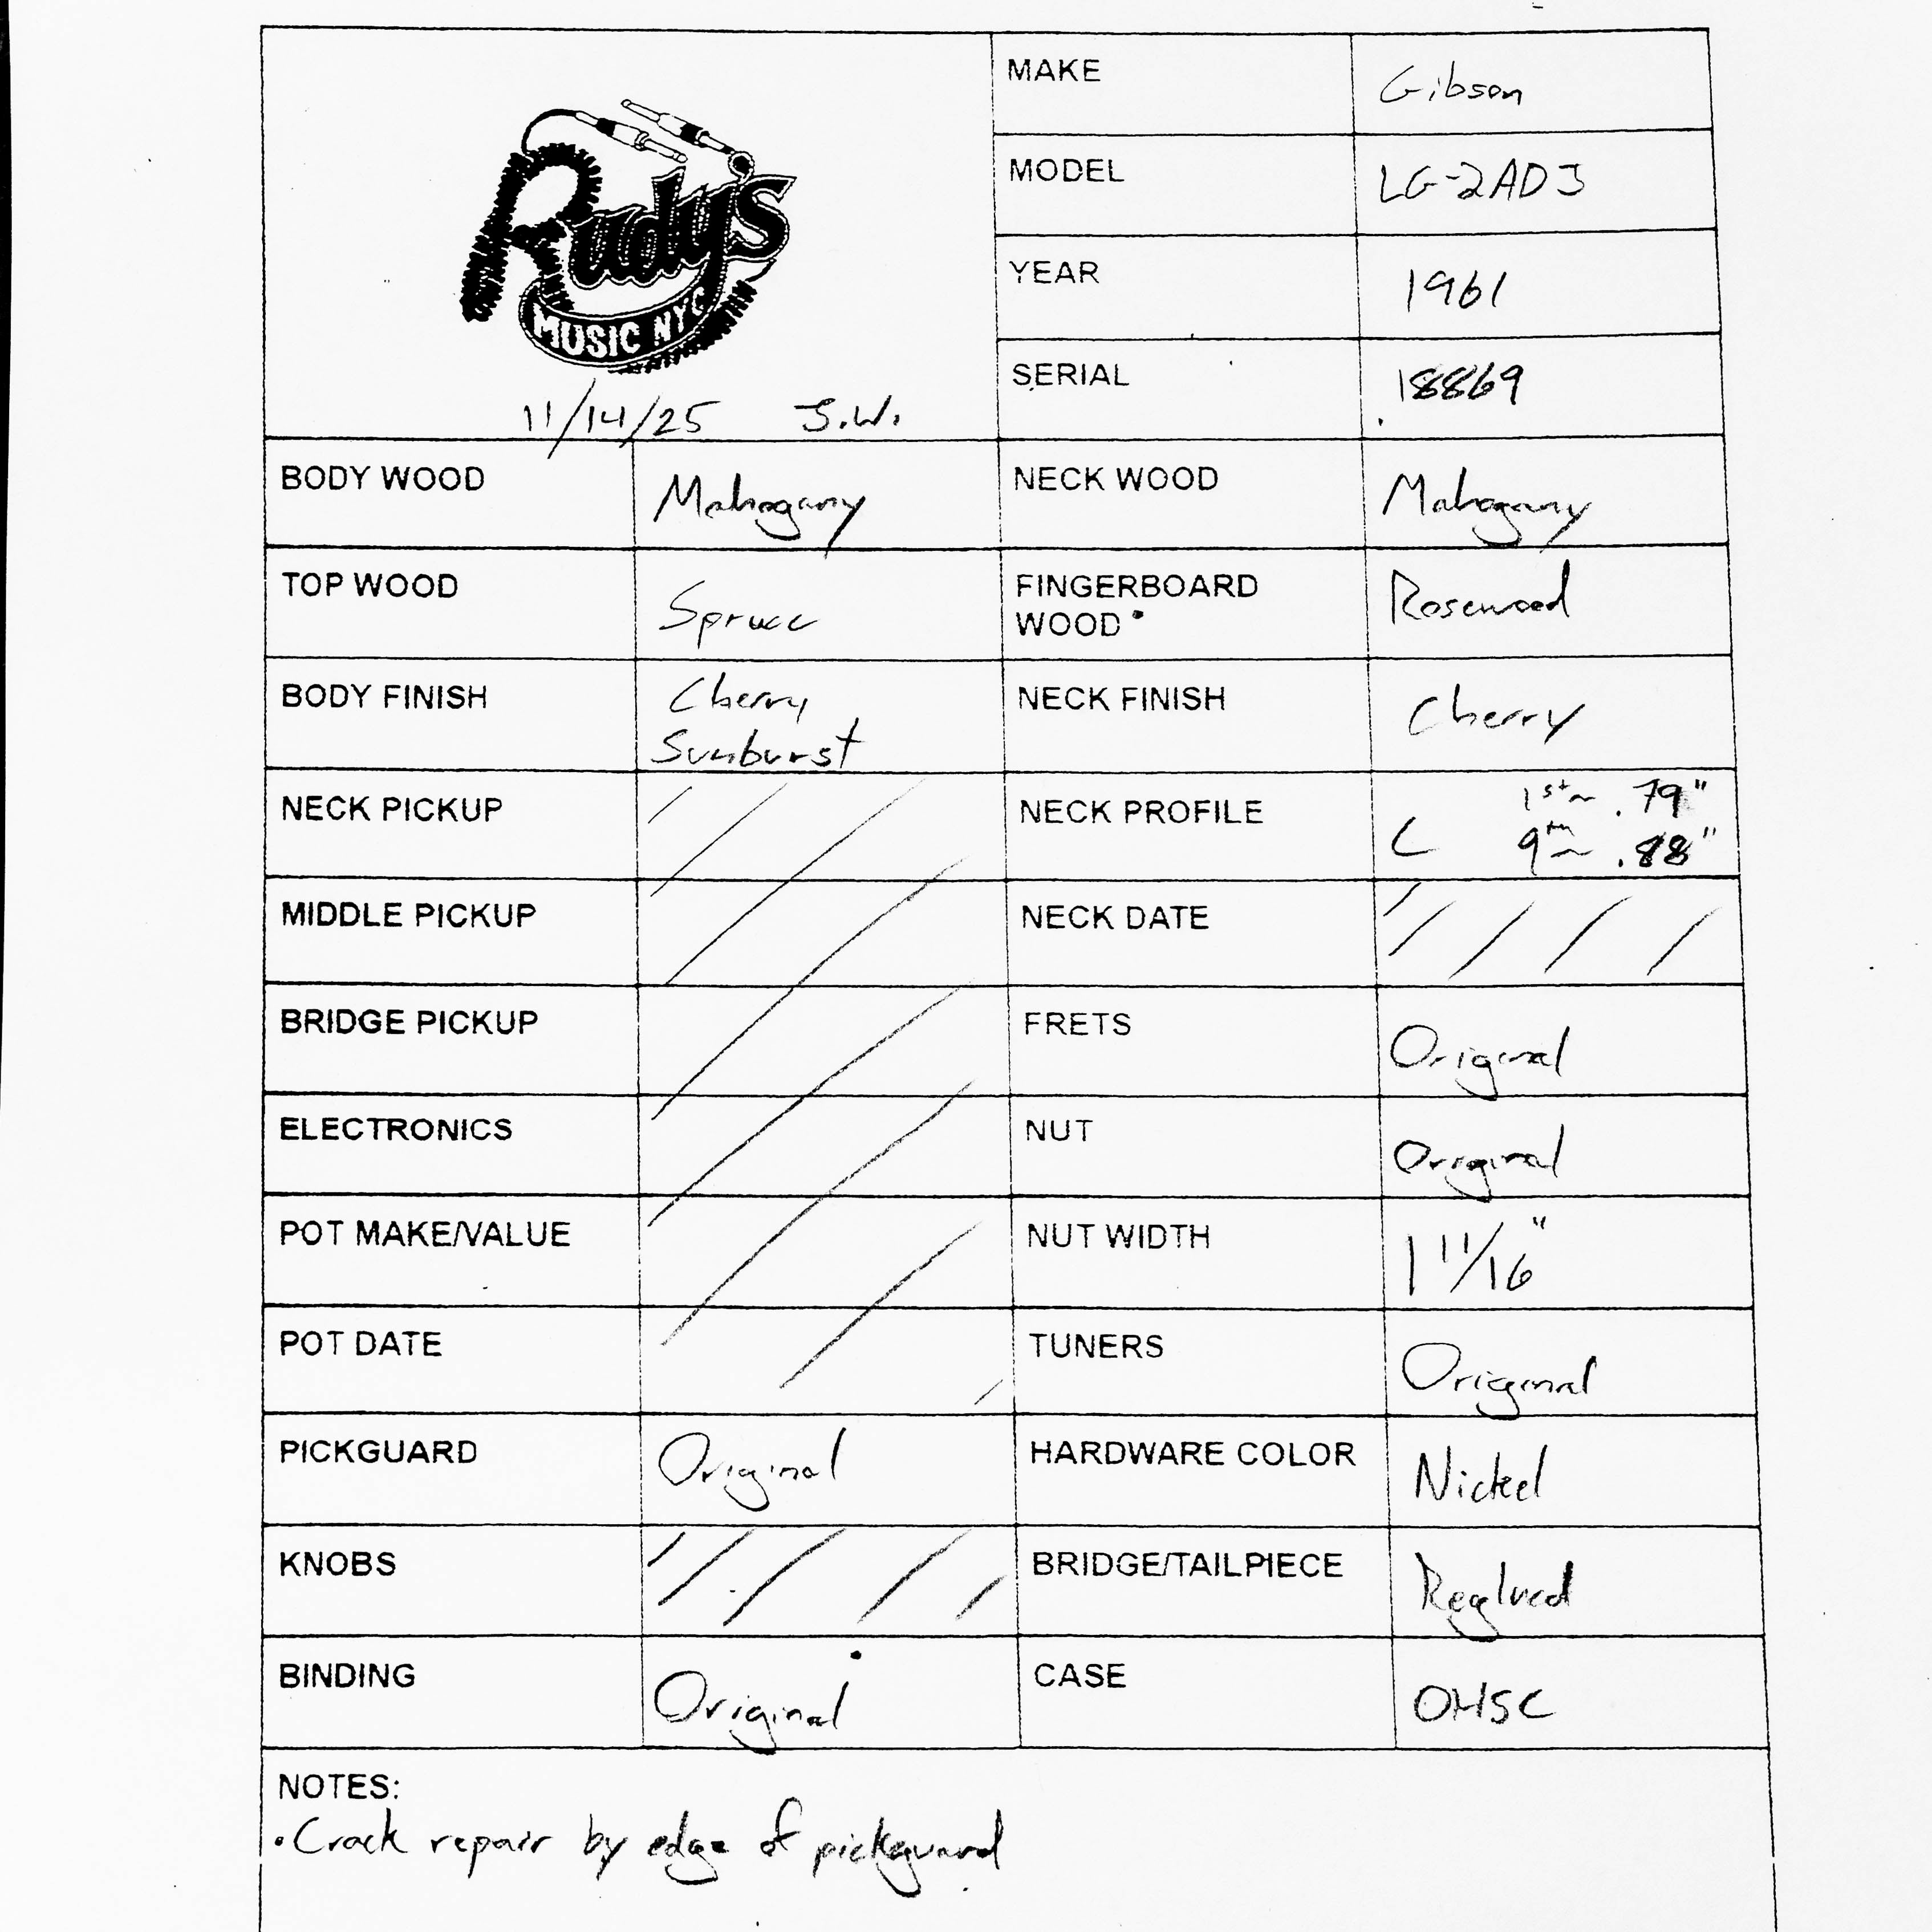 Rudy's
MUSIC NYC
11/14/25 J.W.
MAKE Gibson
MODEL LG-2ADJ
YEAR 1961
SERIAL 18869
BODY WOOD Mahogany NECK WOOD Mahogany
TOP WOOD Spruce FINGERBOARD
WOOD Rosewood
BODY FINISH Cherry
Sunburst
NECK FINISH Cherry
NECK PICKUP NECK PROFILE C 1st ~ .79"
9th ~ .88"
MIDDLE PICKUP NECK DATE
BRIDGE PICKUP FRETS Original
ELECTRONICS NUT Original
POT MAKE/VALUE NUT WIDTH 1 11/16"
POT DATE TUNERS Original
PICKGUARD Original HARDWARE COLOR Nickel
KNOBS BRIDGE/TAILPIECE Reglued
BINDING Original CASE OHSC
NOTES:
• Crack repair by edge of pickguard